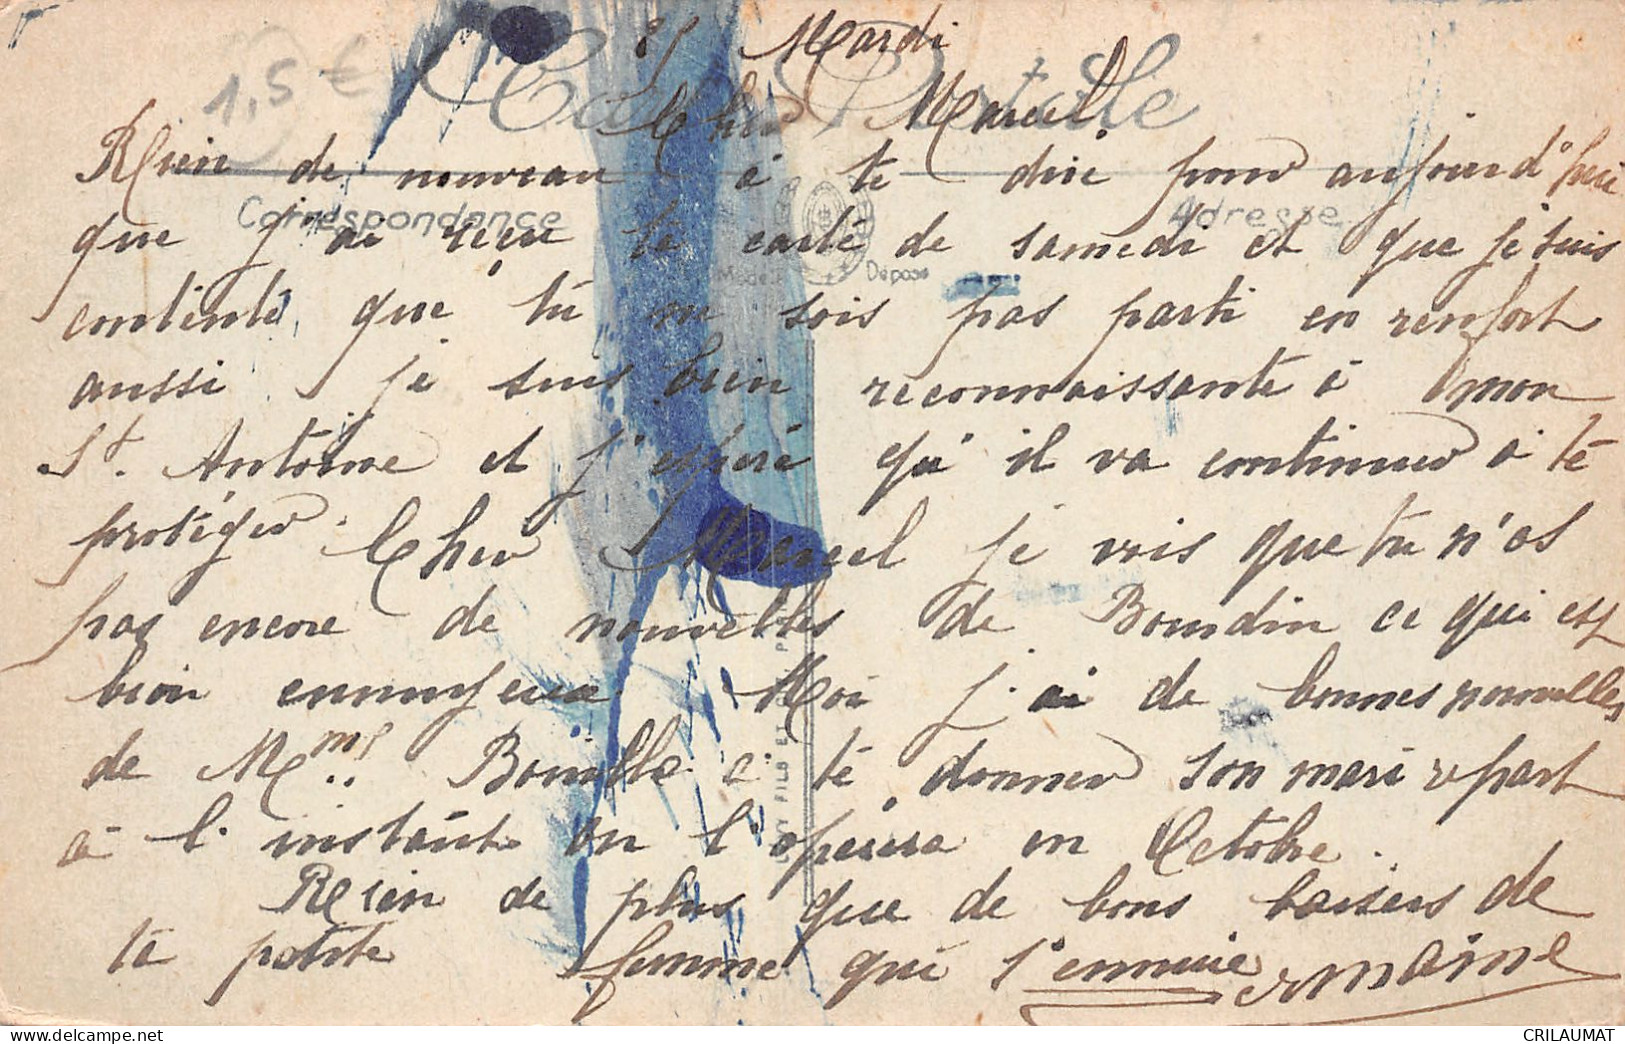 Mardi
1,5 €
Carte Postale
Cher Marcel.
Rien de nouveau à te dire pour aujourd'hui
Correspondance
Adresse
que j'ai reçu ta carte de samedi et que je suis
Modèle Déposé
contente que tu ne sois pas parti en renfort
aussi je suis bien reconnaissante à mon
St. Antoine et j'espère qu'il va continuer à te
protéger. Cher Marcel je vois que tu n'as
pas encore de nouvelles de Bourdin ce qui est
bien ennuyeux Moi j'ai de bonnes nouvelles
de Mme a te donner son mari repart
à l'instant on l'opérera en Octobre.
Rien de plus que de bons baisers de
ta petite femme qui s'ennuie
CRILAUMAT